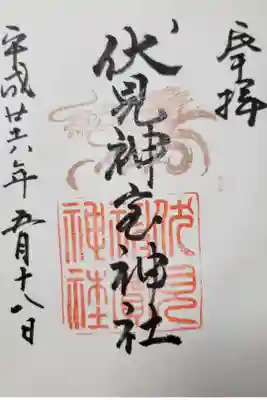 奉拝
伏見神宝神社
平成廿六年五月十八日
伏見
神社